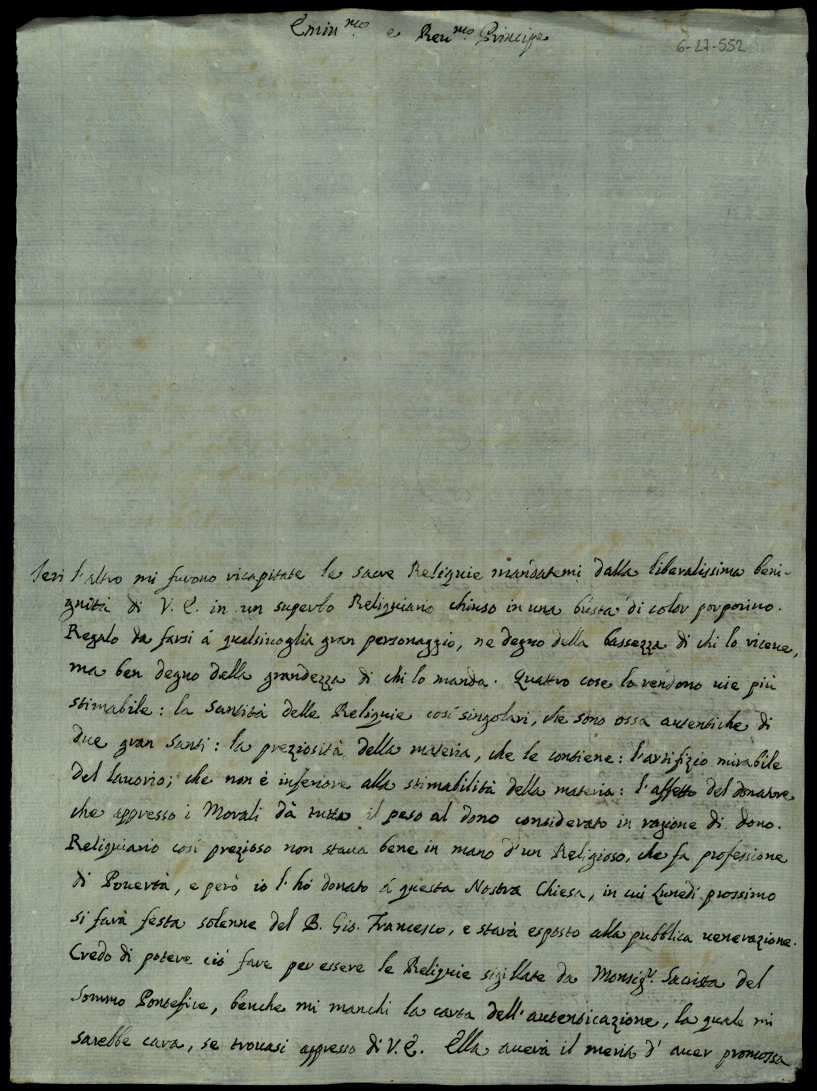 Emin.mo e Reu.mo Principe
6-27-552
Ieri l'altro mi furono ricapitate le sacre Reliquie mandatemi dalla liberalissima beni-
gnità di V. E. in un superbo Reliquiario chiuso in una busta di color porporino.
Regalo da farsi á qualsiuoglia gran personaggio, ne degno della bassezza di chi lo riceue,
ma ben degno della grandezza di chi lo manda. Quattro cose lo rendono uie più
stimabile: la Santità delle Reliquie così singolari, che sono ossa autentiche di
due gran Santi: la preziosità della materia, che le contiene: l'artifizio mirabile
del lauorio; che non è inferiore alla stimabilità della materia: l'affetto del donatore
che appresso i Morali dà tutto il peso al dono considerato in ragione di dono.
Reliquiario così prezioso non staua bene in mano d'un Religioso, che fa professione
di Pouertà, e però io l'hó donato á questa Nostra Chiesa, in cui Lunedì prossimo
si farà festa solenne del B. Gio. Francesco, e starà esposto alla pubblica uenerazione.
Credo di potere ciò fare per essere le Reliquie sigillate da Monsig.r Sacrista del
Sommo Pontefice, benche mi manchi la carta dell'autenticazione, la quale mi
sarebbe cara, se trouasi appresso di V. E. Ella auerà il merito d'auer promossa